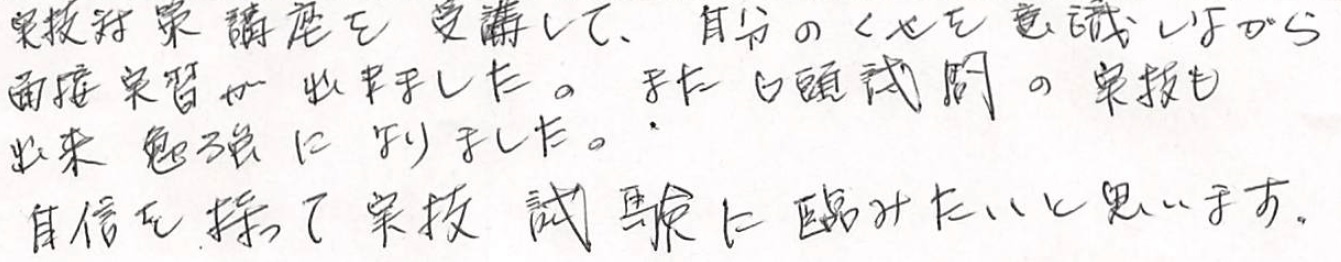 実技対策講座を受講して、自分のくせを意識しながら
面接実習が出来ました。また口頭試問の実技も
出来勉強になりました。
自信を採って実技試験に臨みたいと思います。